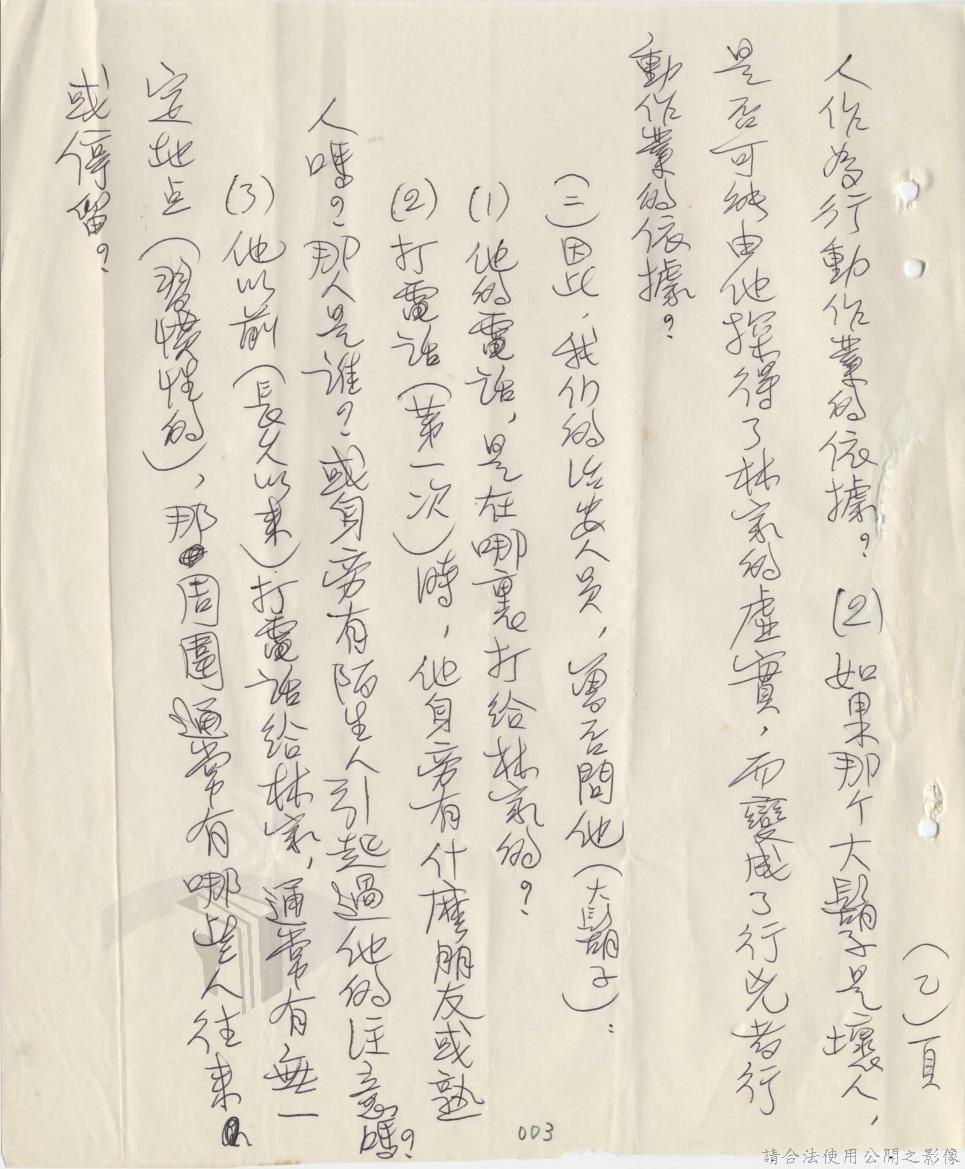 (乙)頁
人作為行動作業的依據？(2)如果那个大鬍子是壞人，
是否可能由他探得了林家的虛實，而變成了行兇者行
動作業的依據？
(二)因此，我们的治安人員，曾否問他(大鬍子)：
(1)他的電話，是在哪裏打給林家的？
(2)打電話(第一次)時，他身旁有什麼朋友或熟
人嗎？那人是誰？或身旁有陌生人引起過他的注意嗎？
(3)他以前(長久以來)打電話給林家，通常有無一
定地点(習慣性的)，那周圍通常有哪些人往來
或停留？
003
請合法使用公開之影像